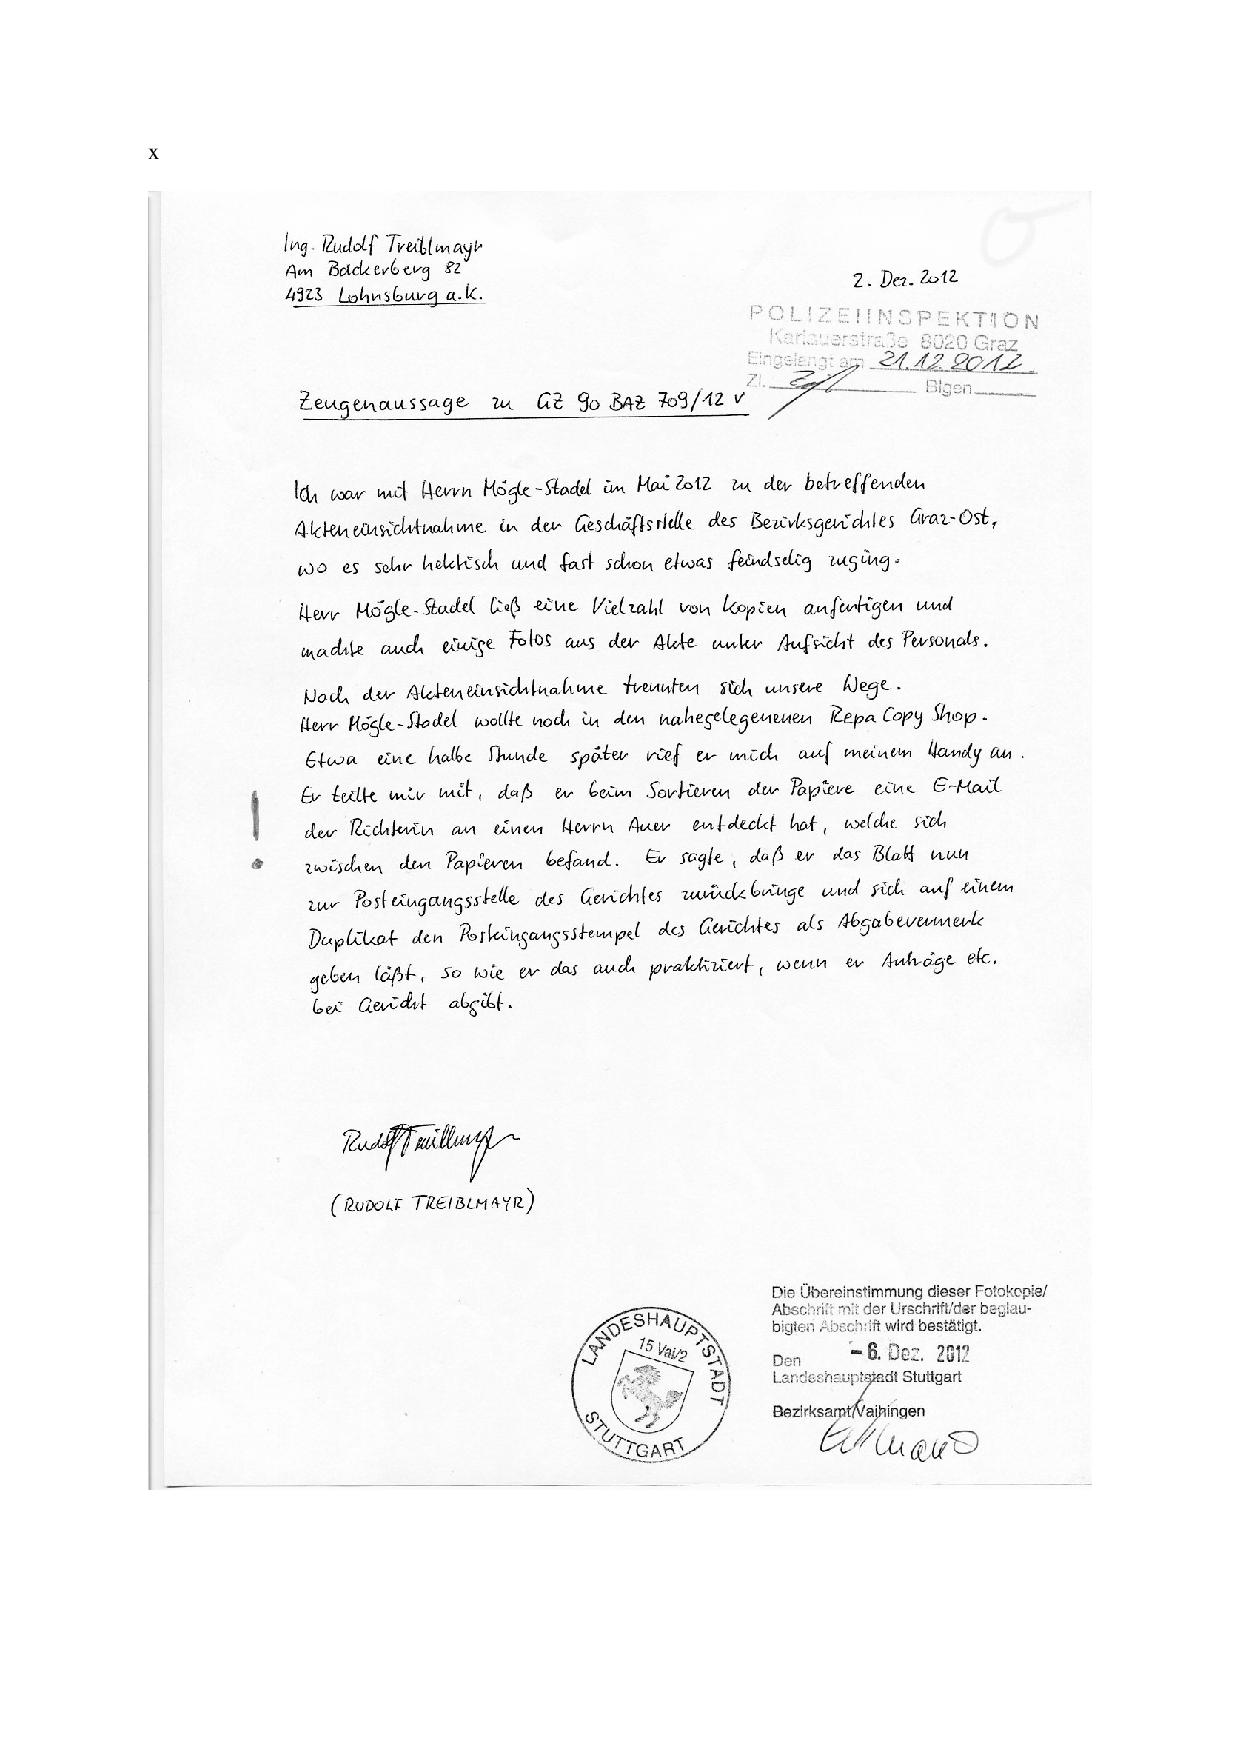 x
Ing. Rudolf Treiblmayr
Am Bäckerberg 82
4923 Lohnsburg a.K.
2. Dez. 2012
POLIZEIINSPEKTION
Karlauerstraße 8020 Graz
Eingelangt am 21.12.2012
Zl. Blgen
Zeugenaussage zu GZ 90 BAZ 709/12 v
Ich war mit Herrn Mögle-Stadel im Mai 2012 zu der betreffenden
Akteneinsichtnahme in der Geschäftsstelle des Bezirksgerichtes Graz-Ost,
wo es sehr hektisch und fast schon etwas feindselig zuging.
Herr Mögle-Stadel ließ eine Vielzahl von Kopien anfertigen und
machte auch einige Fotos aus der Akte unter Aufsicht des Personals.
Nach der Akteneinsichtnahme trennten sich unsere Wege.
Herr Mögle-Stadel wollte noch in den nahegelegenenen Repa Copy Shop.
Etwa eine halbe Stunde später rief er mich auf meinem Handy an.
Er teilte mir mit, daß er beim Sortieren der Papiere eine E-Mail
der Richterin an einen Herrn Auer entdeckt hat, welche sich
zwischen den Papieren befand. Er sagte, daß er das Blatt nun
zur Posteingangsstelle des Gerichtes zurückbringe und sich auf einem
Duplikat den Posteingangsstempel des Gerichtes als Abgabevermerk
geben läßt, so wie er das auch praktiziert, wenn er Anträge etc.
bei Gericht abgibt.
Rudolf Treiblmayr
(RUDOLF TREIBLMAYR)
LANDESHAUPTSTADT
15 Vai/2
STUTTGART
Die Übereinstimmung dieser Fotokopie/
Abschrift mit der Urschrift/der beglau-
bigten Abschrift wird bestätigt.
Den - 6. Dez. 2012
Landeshauptstadt Stuttgart
Bezirksamt Vaihingen